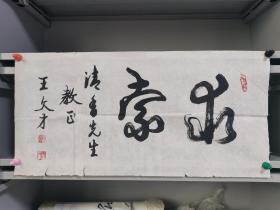 求索
清香先生
教正
王文才